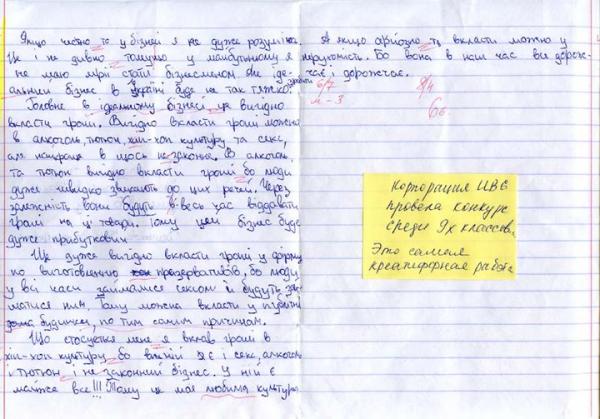 Якщо чесно та у бізнесі я не дуже розуміюся.
Це і не дивно тому що у майбутньому я
не маю мрії стати бізнесменом. Але іде-
альний бізнес в Україні буде не так тяжко зробити
Головне в ідеальному бізнесі, це вигідно
вкласти гроші. Вигідно вкласти гроші можна
в алкоголь, тютюн, хіп-хоп культуру та секс,
але найкраще в щось незаконне. В алкоголь
та тютюн вигідно вкласти гроші бо люди
дуже швидко звикають до цих речей. Через
залежність вони будуть в-весь час віддавати
гроші на ці товари. Тому цей бізнес буде
дуже прибутковим
Ще дуже вигідно вкласти гроші у фірму
по виготовленню презервативів, бо люди
у всі часи займалися сексом й будуть зай-
матися ним. Тому можна вкласти у публічні
дома будинки, по тим самим причинам.
Що стосується мене я вклав гроші в
хіп-хоп культуру бо в ній є і секс, алкоголь
і тютюн, і не законний бізнес. У ній є
майже все!!! Тому це моя любима культура
А якщо серйозно то вкласти можна у
нерухомість. Бо вона в наш час все дорож-
чає і дорожчає.
6/7
м-3
8/4
6б.
Корпорация ИВС
провела конкурс
среди 9х классов.
Это самая
креатифорная работа.